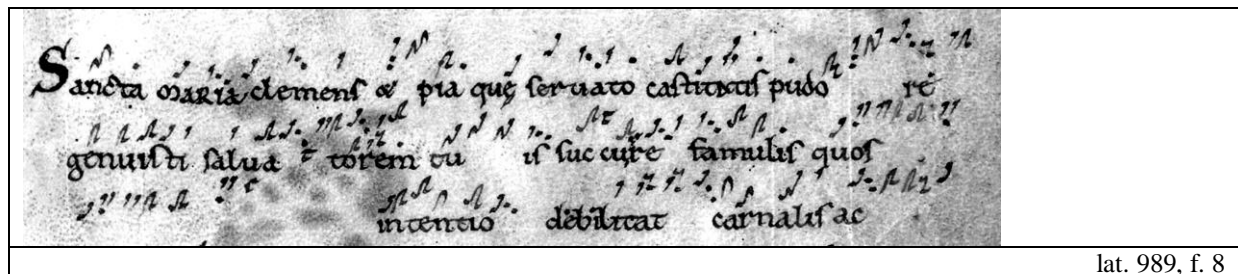 Sancta MARIA clemens & pia quę seruato castitatis pudo re
genuisti salua torem tu is succurre famulis quos
intentio debilitat carnalis ac
lat. 989, f. 8